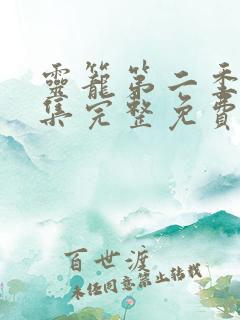 靈籠第二季
集完整免費
百世渡
未经同意禁止转载